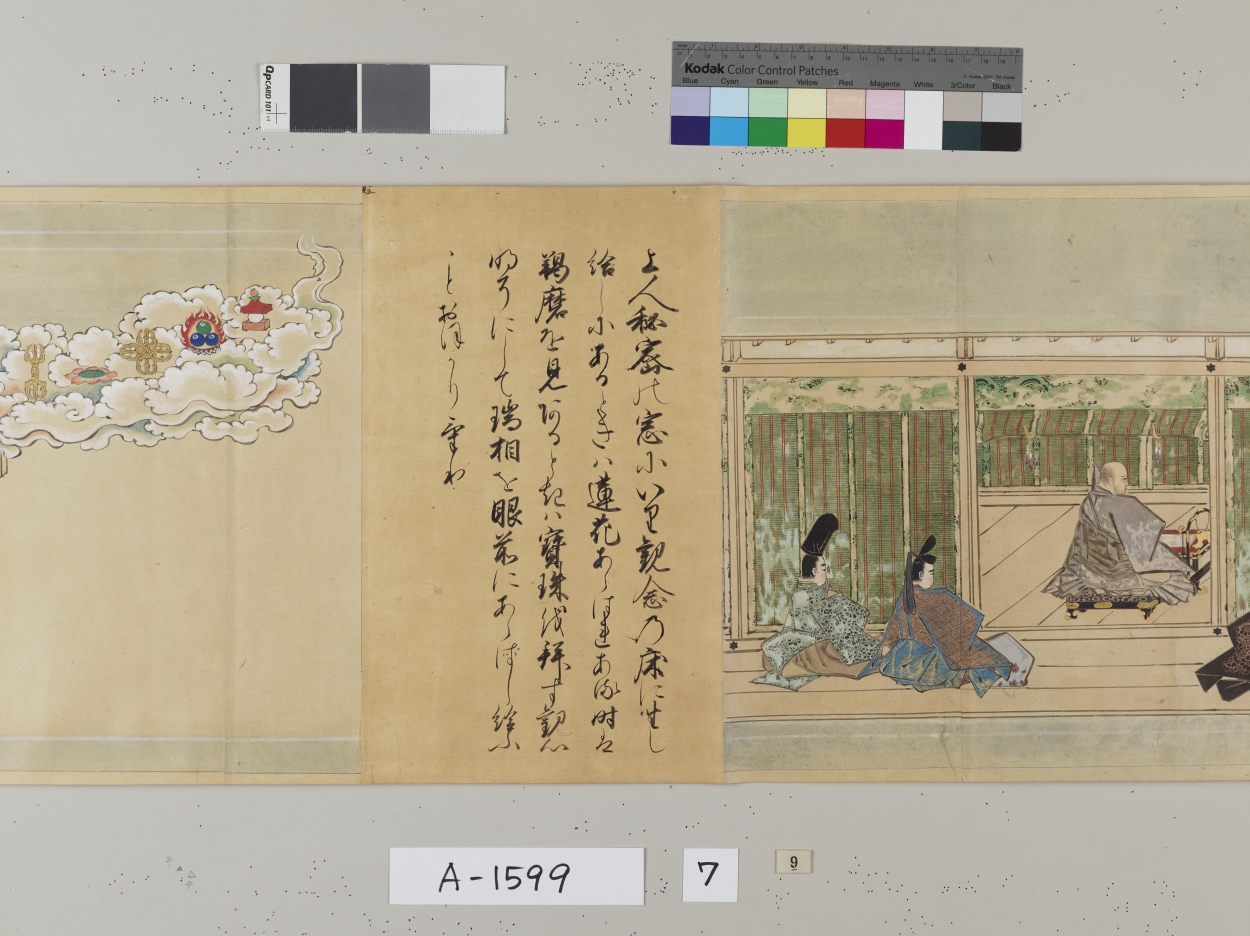 QpCARD 101
Kodak Color Control Patches
Blue Cyan Green Yellow Red Magenta White 3/Color Black
上人秘密の窓にいり観念の床に坐し
給しにあるときハ蓮花あらはれある時は
羯磨を見あるときハ寶珠を拝す観心
明了にして瑞相を眼前にあらはし給ふ
ことおほかりき
A-1599
7
9